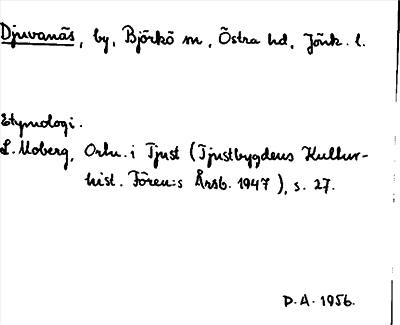 Djuvanäs, by, Björkö sn, Östra hd, Jönk. l.
Etymologi.
L. Moberg, Ortn. i Tjust (Tjustbygdens Kultur-
hist. Fören:s Årsb. 1947), s. 27.
D.A. 1956.